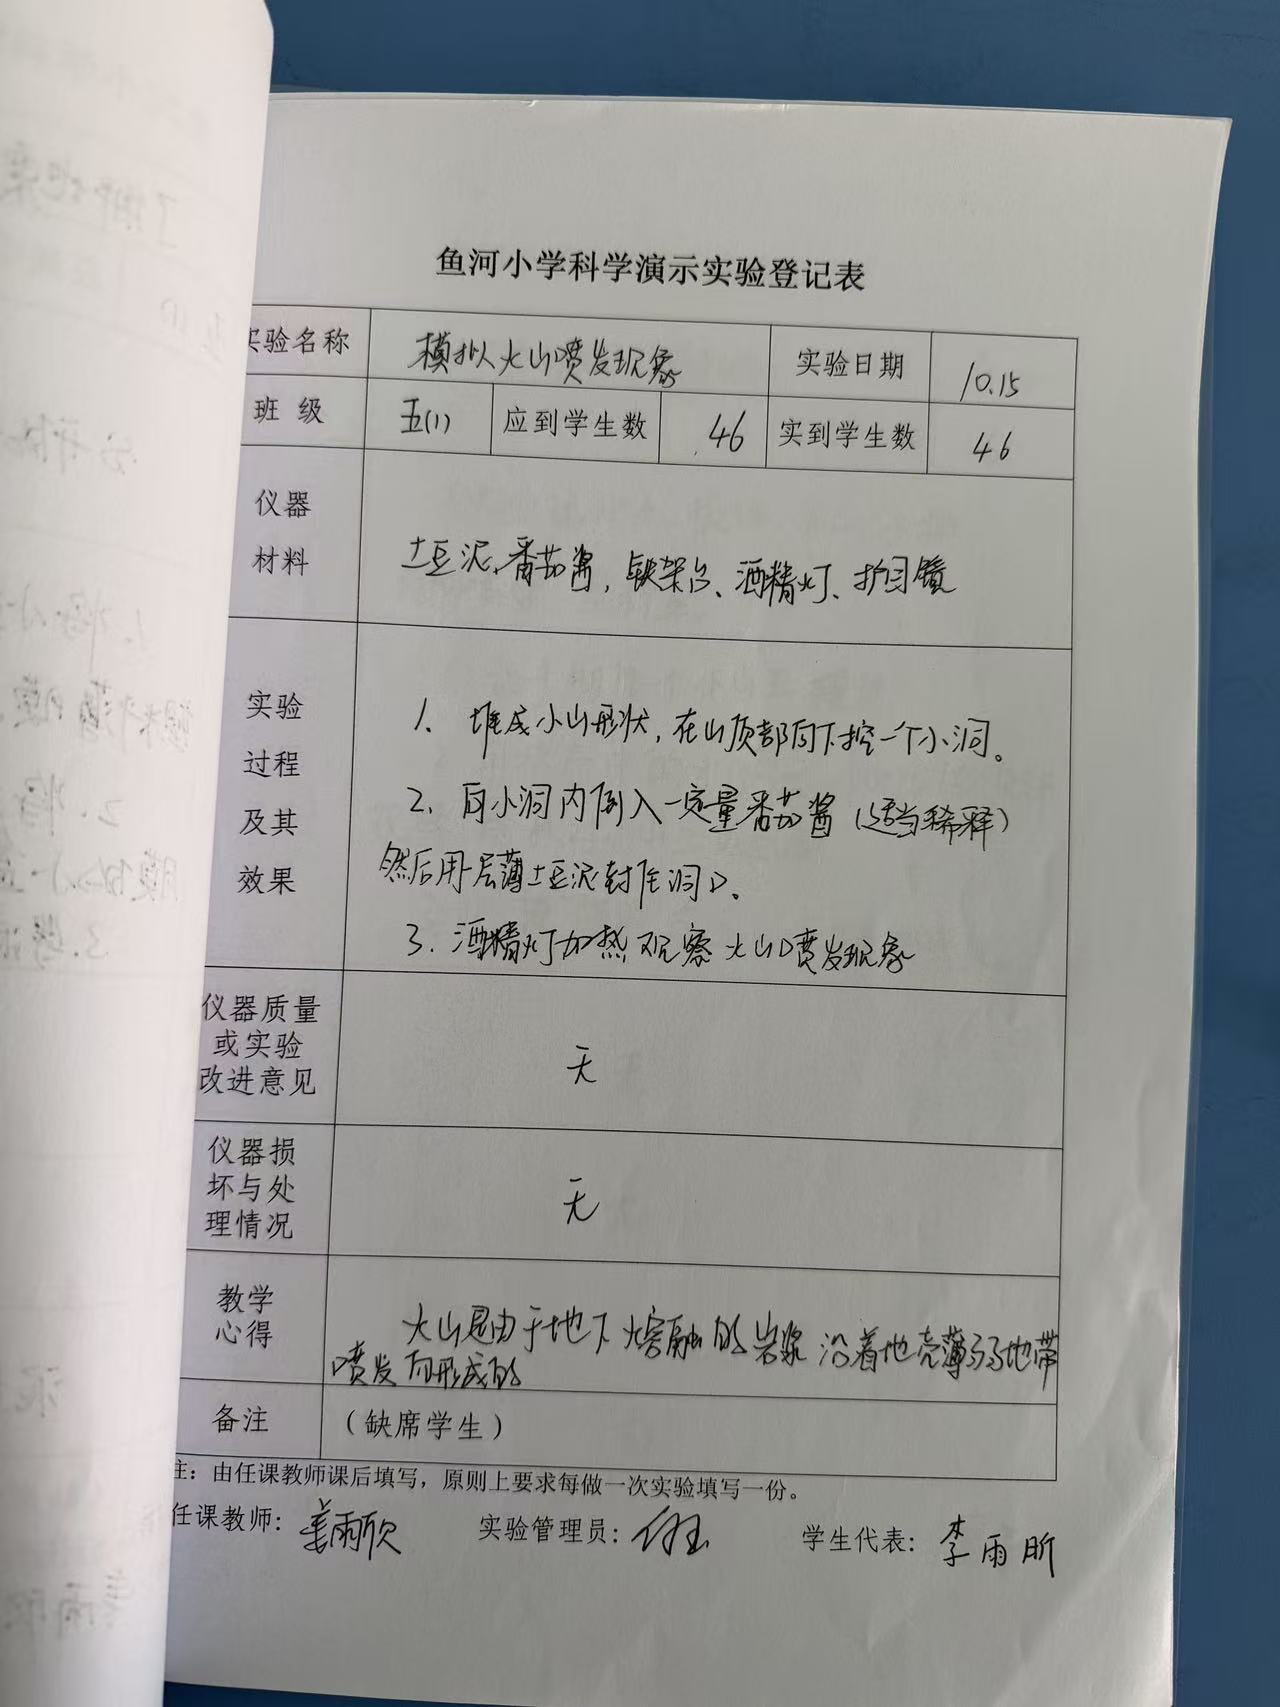 鱼河小学科学演示实验登记表
实验名称 模拟火山喷发现象 实验日期 10.15
班级 五(1) 应到学生数 46 实到学生数 46
仪器
材料
土豆泥、番茄酱，铁架台、酒精灯、护目镜
实验
过程
及其
效果
1. 堆成小山形状，在山顶部向下挖一个小洞。
2. 向小洞内倒入一定量番茄酱（适当稀释）
然后用一层薄土豆泥封住洞口。
3. 酒精灯加热观察火山喷发现象
仪器质量
或实验
改进意见
无
仪器损
坏与处
理情况
无
教学
心得
火山是由于地下熔融的岩浆沿着地壳薄弱地带
喷发而形成的
备注 （缺席学生）
注：由任课教师课后填写，原则上要求每做一次实验填写一份。
任课教师：姜雨欣 实验管理员： 学生代表：李雨昕